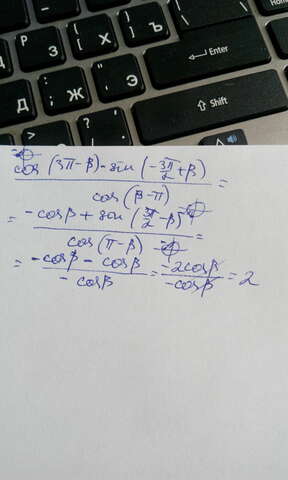 Р
{
Х
[
Ъ
Enter
Д
Ж
;
Э
Shift
cos (3π-β) - sin (-3π/2 + β)
cos (β-π) =
= -cosβ + sin (3π/2 - β)
cos (π-β) =
= -cosβ - cosβ / -cosβ = -2cosβ / -cosβ = 2